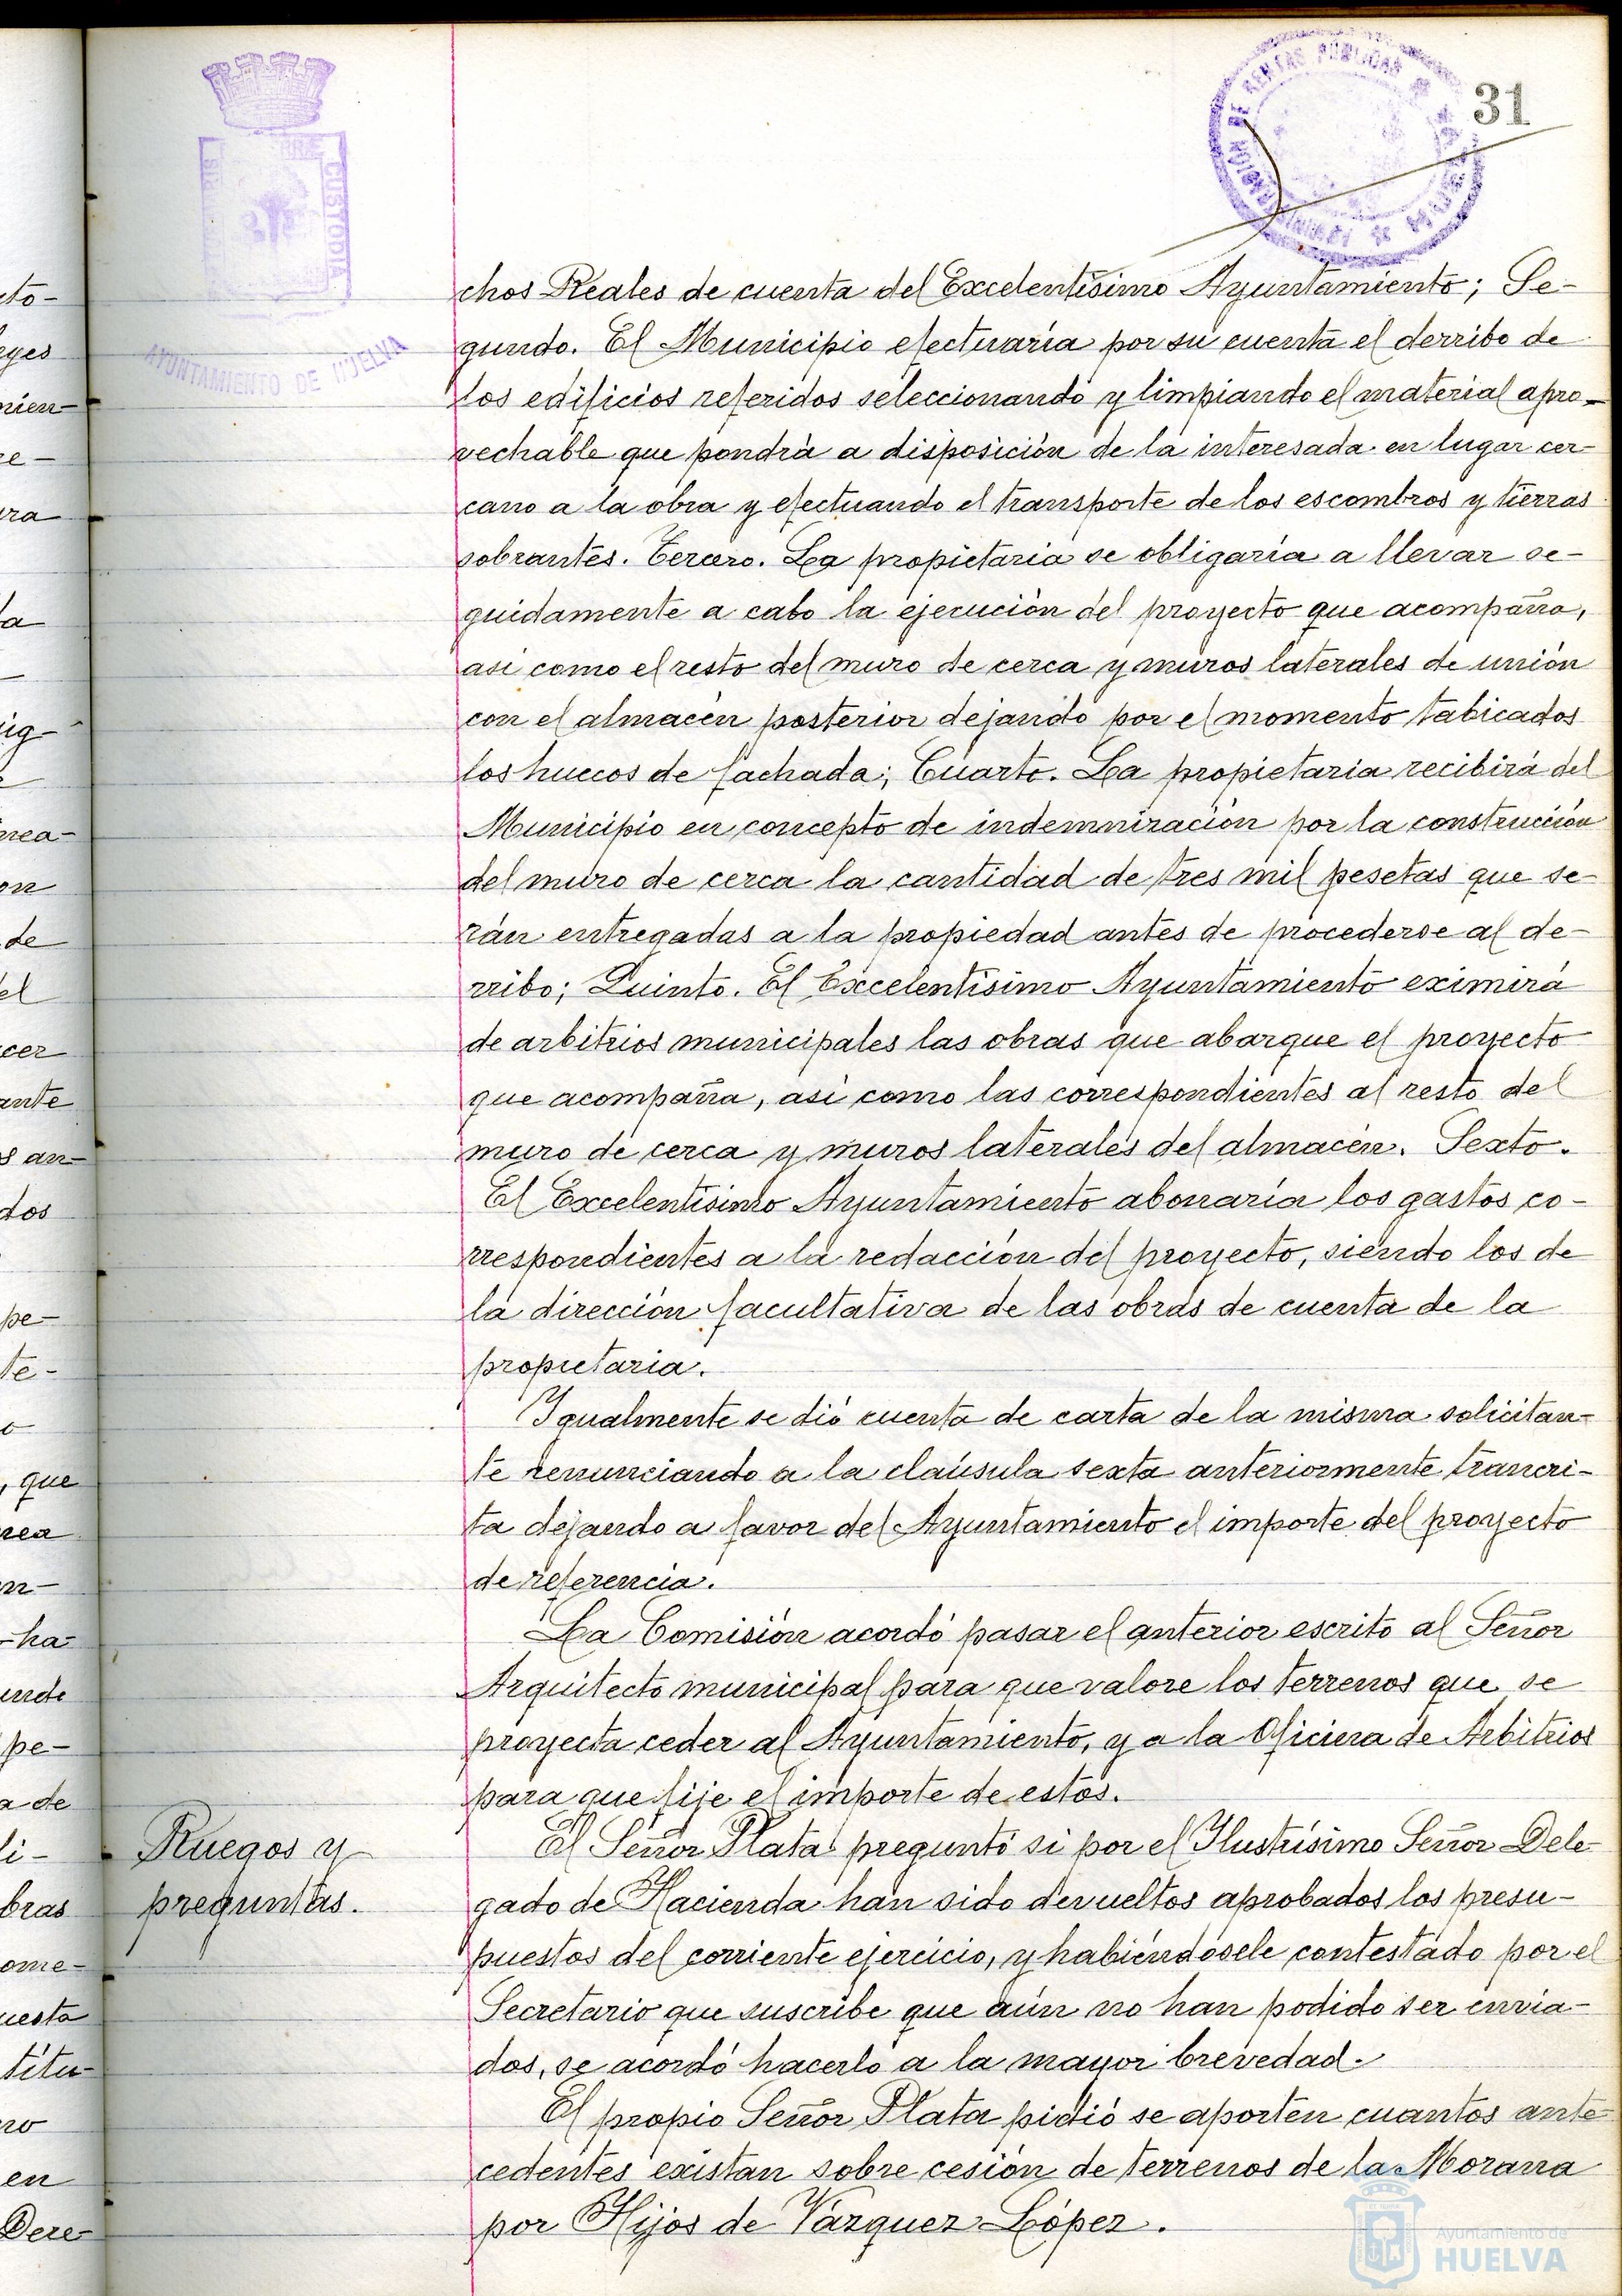 31
chos Reales de cuenta del Excelentísimo Ayuntamiento; Se-
gundo. El Municipio efectuaría por su cuenta el derribo de
los edificios referidos seleccionando y limpiando el material apro-
vechable que pondrá a disposición de la interesada en lugar cer-
cano a la obra y efectuando el transporte de los escombros y tierras
sobrantes. Tercero. La propietaria se obligaría a llevar se-
guidamente a cabo la ejecución del proyecto que acompaña,
así como el resto del muro de cerca y muros laterales de unión
con el almacén posterior dejando por el momento tabicados
los huecos de fachada; Cuarto. La propietaria recibirá del
Municipio en concepto de indemnización por la construcción
del muro de cerca la cantidad de tres mil pesetas que se-
rán entregadas a la propiedad antes de procederse al de-
rribo; Quinto. El Excelentísimo Ayuntamiento eximirá
de arbitrios municipales las obras que abarque el proyecto
que acompaña, así como las correspondientes al resto del
muro de cerca y muros laterales del almacén. Sexto.
El Excelentísimo Ayuntamiento abonaría los gastos co-
rrespondientes a la redacción del proyecto, siendo los de
la dirección facultativa de las obras de cuenta de la
propietaria.
Igualmente se dió cuenta de carta de la misma solicitan-
te renunciando a la claúsula sexta anteriormente trancri-
ta dejando a favor del Ayuntamiento el importe del proyecto
de referencia.
La Comisión acordó pasar el anterior escrito al Señor
Arquitecto municipal para que valore los terrenos que se
proyecta ceder al Ayuntamiento, y a la Oficina de Arbitrios
para que fije el importe de estos.
Ruegos y
preguntas.
El Señor Plata preguntó si por el Ilustrísimo Señor Dele-
gado de Hacienda han sido devueltos aprobados los presu-
puestos del corriente ejercicio, y habiéndosele contestado por el
Secretario que suscribe que aún no han podido ser envia-
dos, se acordó hacerlo a la mayor brevedad.
El propio Señor Plata pidió se aporten cuantos ante-
cedentes existan sobre cesión de terrenos de la Morana
por Hijos de Vázquez López.
CUSTODIA
AYUNTAMIENTO DE HUELVA
ADMINISTRACIÓN DE RENTAS PUBLICAS
Ayuntamiento de
HUELVA